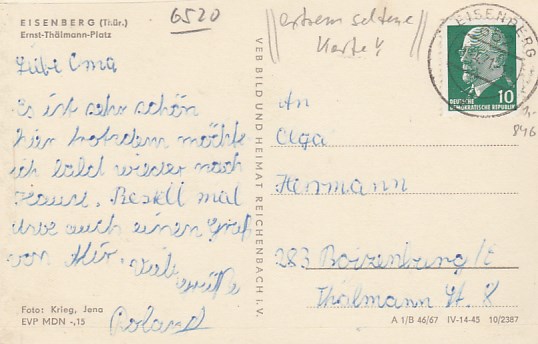 EISENBERG (Thür.)
Ernst-Thälmann-Platz
6520
extrem seltene
Karte!
Liebe Oma
Es ist sehr schön
hier trotzdem möchte
ich bald wieder nach
Hause. Bestell mal
auch einen Gruß
von Mir. Viele
Grüße
Roland
Foto: Krieg, Jena
EVP MDN -,15
VEB BILD UND HEIMAT REICHENBACH i. V.
EISENBERG
DEUTSCHE
DEMOKRATISCHE REPUBLIK
10
846
An
Olga
Herrmann
283 Boizenburg/E
Thälmann St. 8
A 1/B 46/67 IV-14-45 10/2387